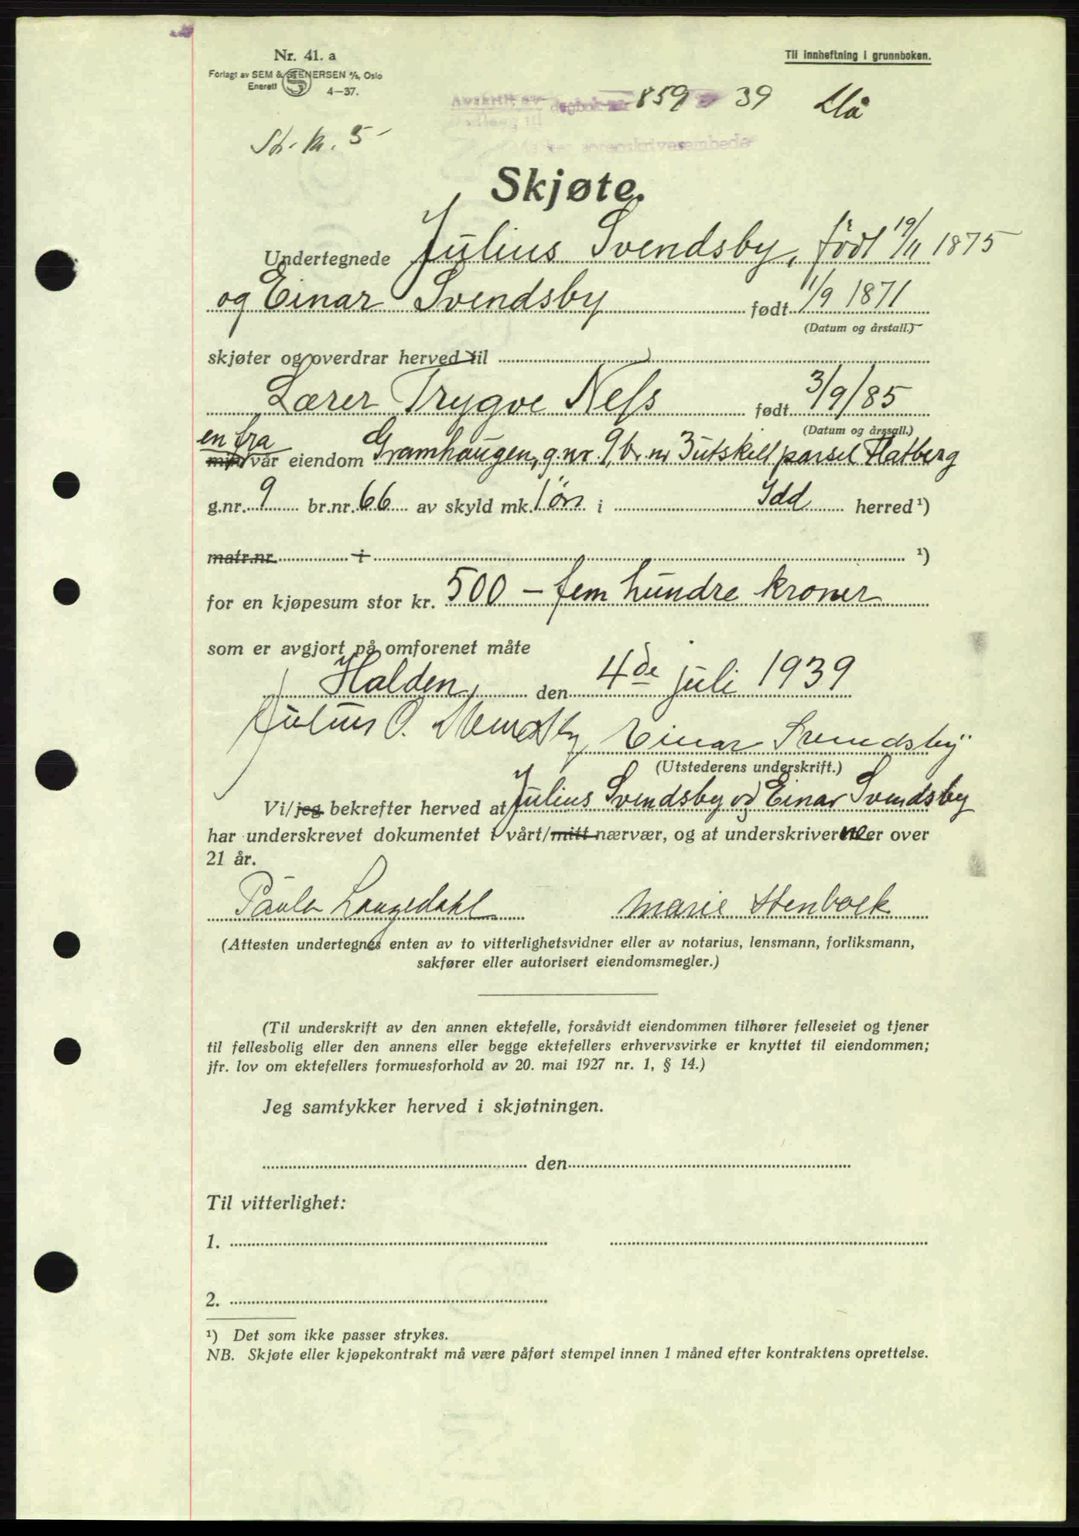 Nr. 41. a
Til innheftning i grunnboken.
Forlagt av SEM & STENERSEN A/S, Oslo
Enerett 4-37.
dagbok nr. 859 39
sorenskriverembede
St. kr. 5-
Skjøte.
Undertegnede Julius Svendsby, født 19/11 1875
og Einar Svendsby født 1/9 1871
(Datum og årstall.)
skjøter og overdrar herved til
Lærer Trygve Ness født 3/9/85
(Datum og årstall.)
en fra
min/vår eiendom Gramhaugen, g.nr. 9, br. nr 3 utskilt parsel Flatberg
g.nr. 9 br.nr. 66 av skyld mk. 1 øre i Idd herred ¹)
matr.nr. i ¹)
for en kjøpesum stor kr. 500 – fem hundre kroner
som er avgjort på omforenet måte
Halden, den 4de juli 1939
Julius O. Svendsby Einar Svendsby
(Utstederens underskrift.)
Vi/jeg bekrefter herved at Julius Svendsby og Einar Svendsby
har underskrevet dokumentet i vårt/mitt nærvær, og at underskriverne er over
21 år.
Paula Langedahl Marie Stenboek
(Attesten undertegnes enten av to vitterlighetsvidner eller av notarius, lensmann, forliksmann,
sakfører eller autorisert eiendomsmegler.)
(Til underskrift av den annen ektefelle, forsåvidt eiendommen tilhører felleseiet og tjener
til fellesbolig eller den annens eller begge ektefellers erhvervsvirke er knyttet til eiendommen;
jfr. lov om ektefellers formuesforhold av 20. mai 1927 nr. 1, § 14.)
Jeg samtykker herved i skjøtningen.
den
Til vitterlighet:
1.
2.
¹) Det som ikke passer strykes.
NB. Skjøte eller kjøpekontrakt må være påført stempel innen 1 måned efter kontraktens oprettelse.